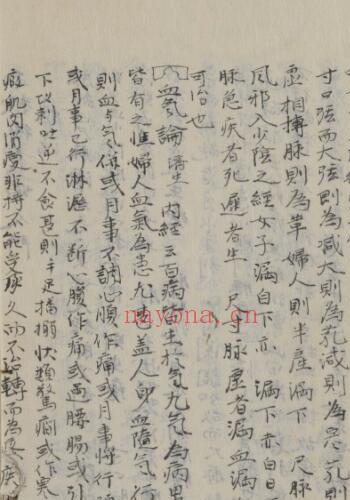 寸口弦而大弦則為減大則為芤減則為寒芤則
虛相搏脉則為革婦人則半産漏下 尺脉
風邪入少陰之經女子漏白下赤 漏下赤白日
脉急疾者死遲者生 尺寸脉虛者漏血漏
可治也
血氣論 濟生 內經云百病皆生於氣九氣為病男
皆有之惟婦人血氣為患尤甚盖人身血隨氣行
則血与气併或月事不調心腹作痛或月事將行
或月事已行淋瀝不断心腹作痛或連腰脇或引
下攻刺吐逆不食甚則手足搐搦状類驚癇或作寒
肌肉消瘦非特不能受孕久而不治轉而為疾
nayona.cn